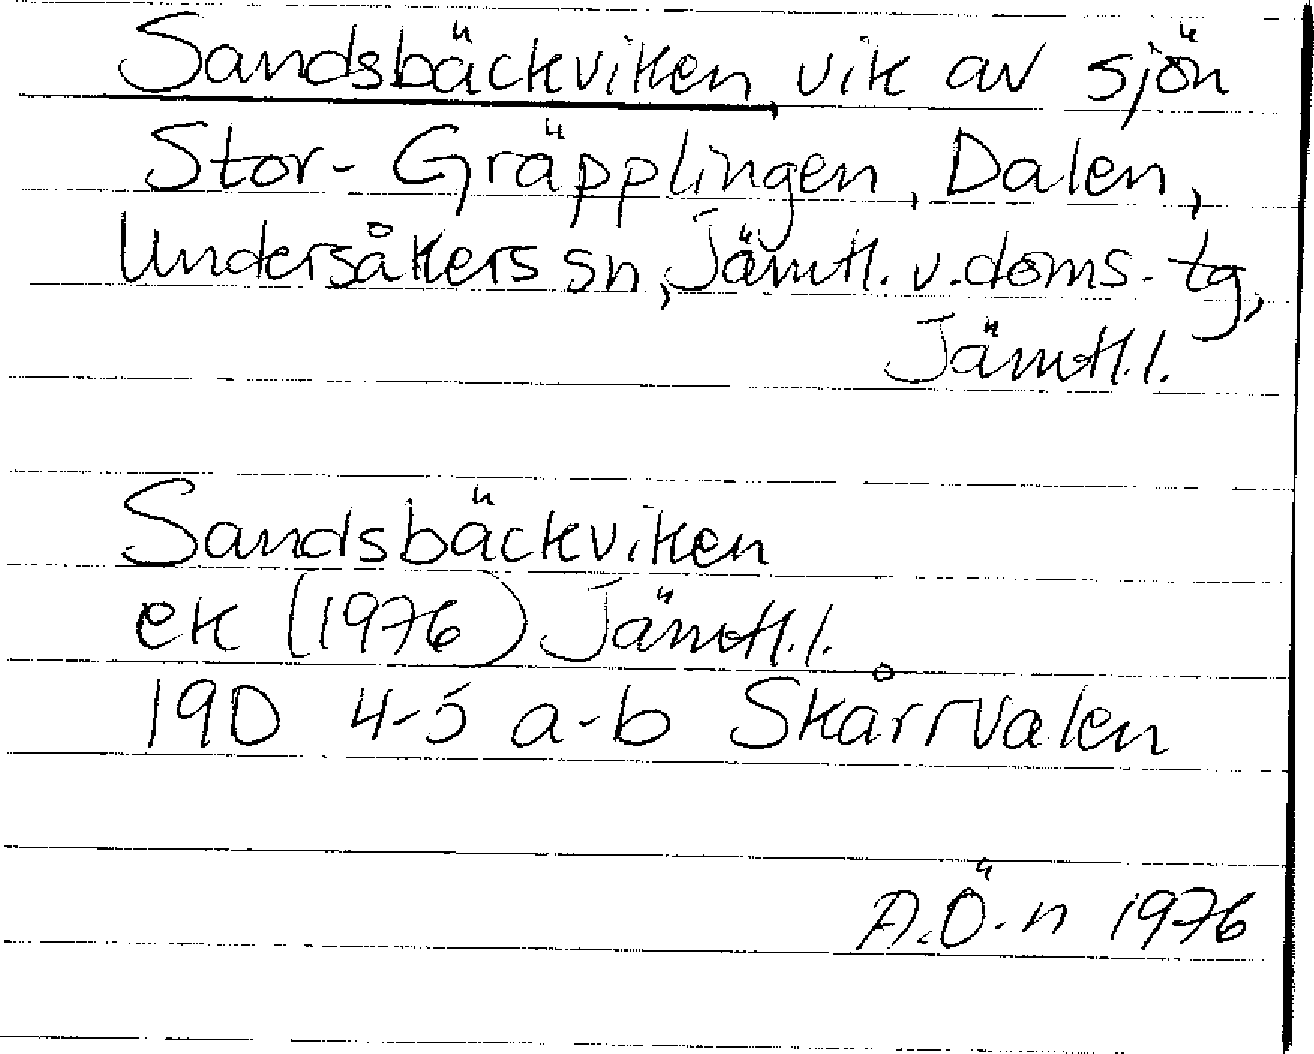 Sandsbäckviken, vik av sjön
Stor-Gräpplingen, Dalen,
Undersåkers sn, Jämtl. v. doms. tg,
Jämtl. l.
Sandsbäckviken
ek (1976) Jämtl. l.
19D 4-5 a-b Skårrvalen
A.Ö-n 1976